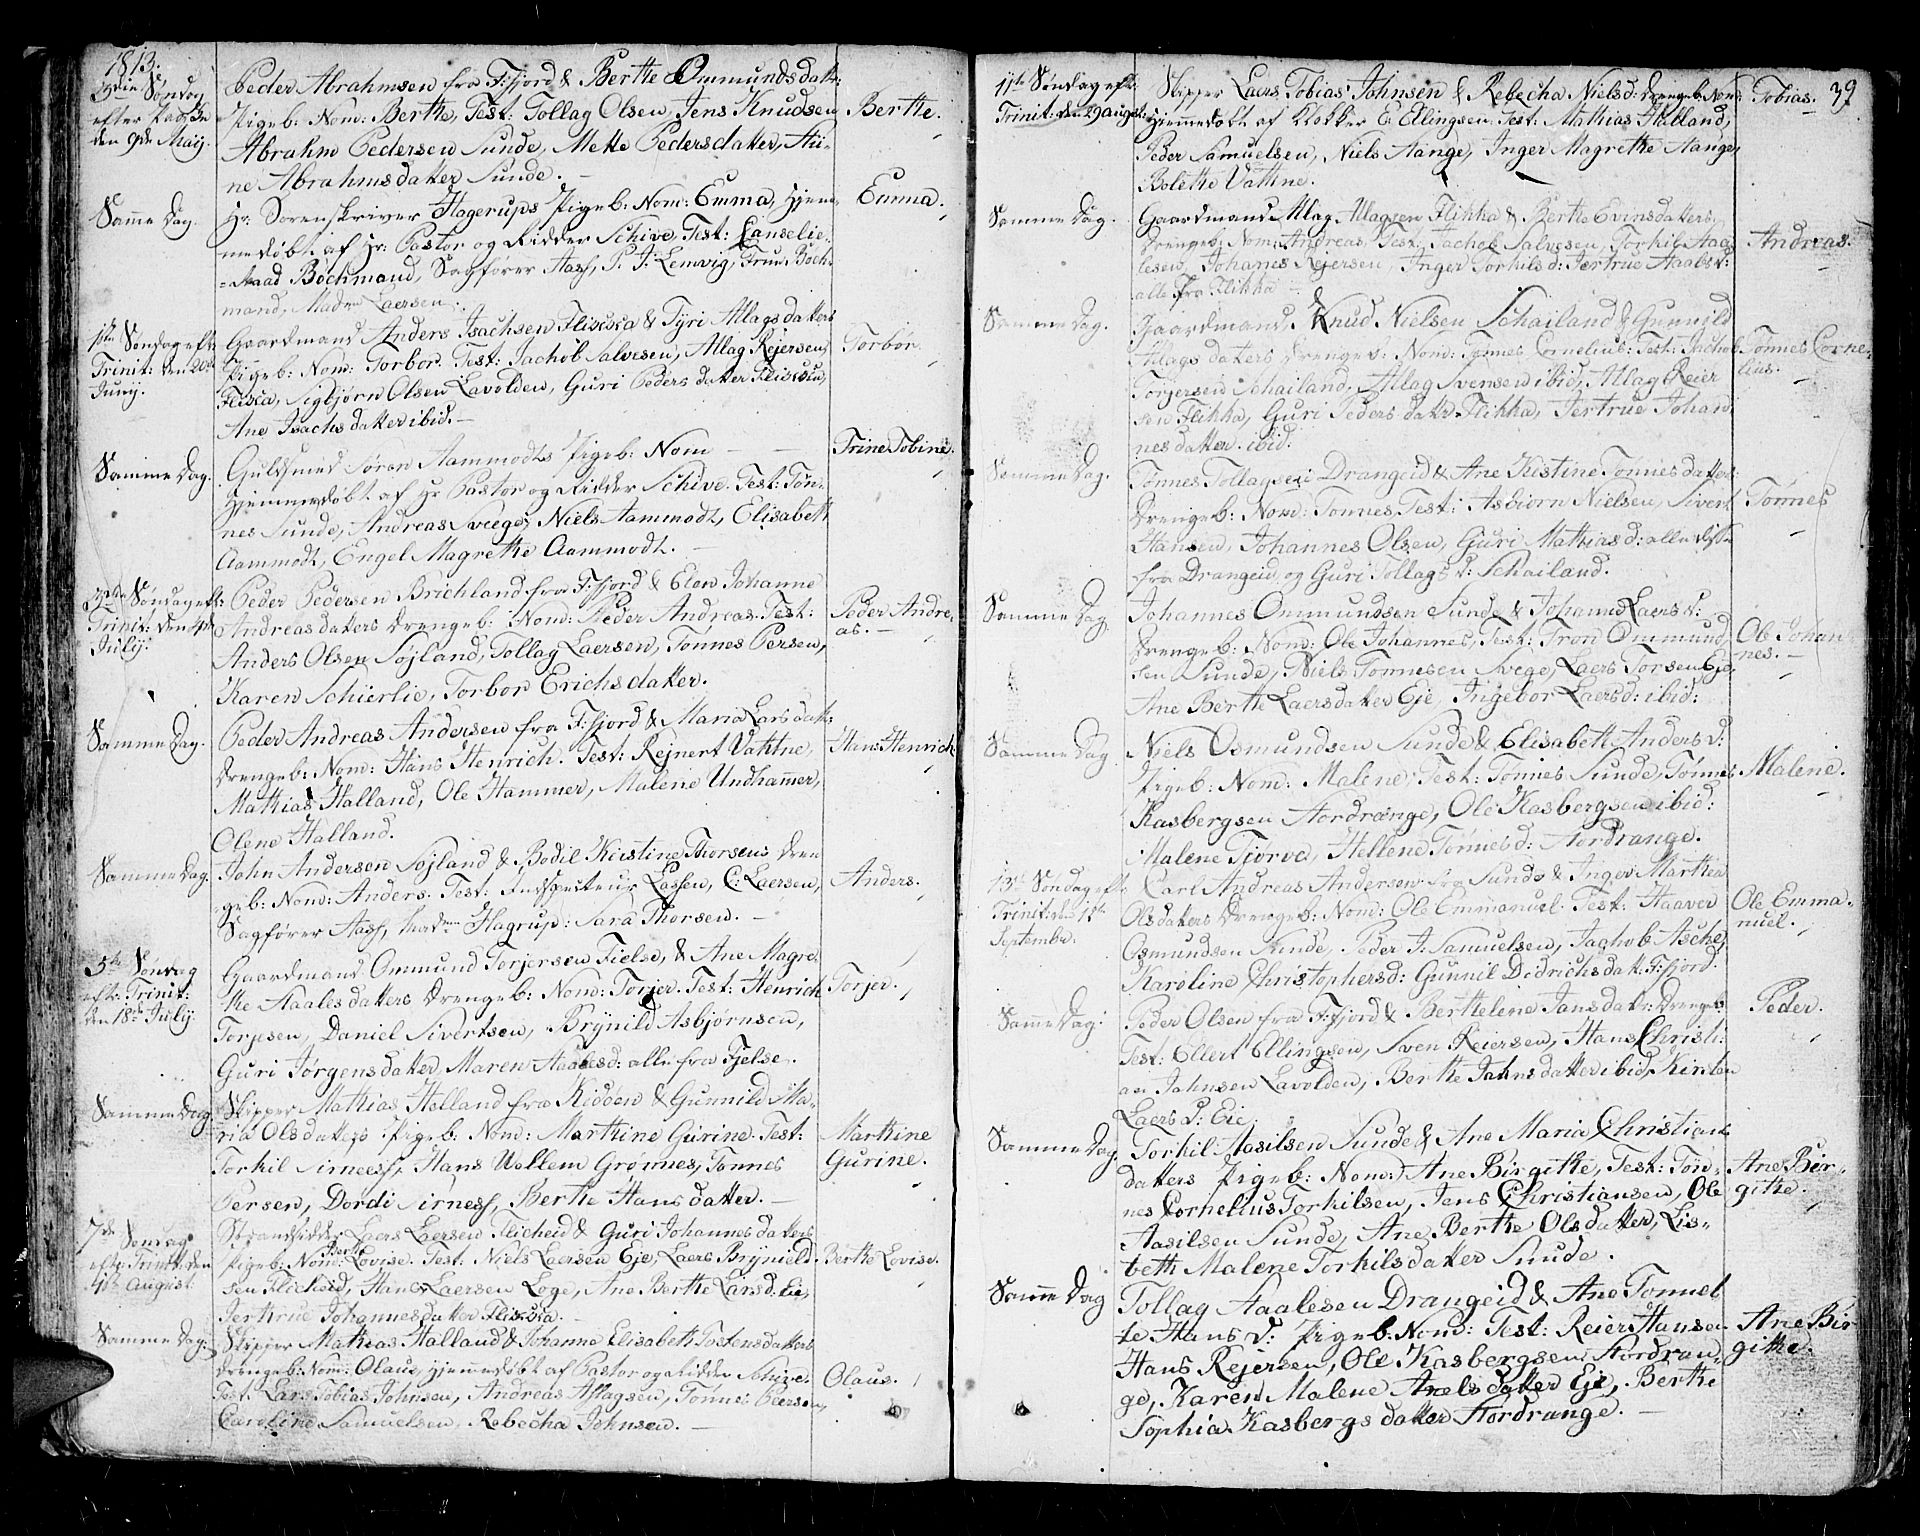 1813.
3die Søndag
efter Paaske
den 9de Maij.
Peder Abrahmsen fra F:fjord & Berthe Ommundsdatr:
Pigeb: Nom: Berthe, Test: Tollag Olsen, Jens Knudsen
Abrahm Pedersen Sunde, Mette Pedersdatter, An-
ne Abrahmsdatter Sunde. –
Berthe.
Samme Dag.
Hr: Sorenskriver Hagerups Pigeb: Nom: Emma, hjem-
medøbt af Hr: Pastor og Ridder Schive, Test: Canselie-
raad Bochmand, Sagfører Aass, P. J. Lemvig, Frue Boch-
mand, Madm Laersen.
Emma.
1ste Søndag eft:
Trinit: den 20de
Junij.
Gaardmand Anders Isachsen Flischa & Tyri Atlagsdatters
Pigeb: Nom: Torbor. Test: Jachob Salvesen, Atlag Rejersen
Flisca, Sigbjørn Olsen Lavolden, Guri Pedersdatter Flischa,
Ane Isachsdatter ibid. –
Torbor.
Samme Dag.
Guldsmed Søren Aammodts Pigeb: Nom – –
Hjemmedøbt af Hr Pastor og Ridder Schive. Test: Tøn-
nes Sunde, Andreas Svege, Niels Aammodt, Elisabeth
Aammodt, Engel Magrethe Aammodt. –
Trine Tobine.
3die Søndag eft:
Trinit: den 4de
Julij.
Peder Pedersen Brichland fra F:fjord & Elen Johanne
Andreasdatters Drengeb: Nom: Peder Andreas. Test:
Anders Olsen Søjland, Tollag Laersen, Tønnes Persen,
Karen Schierlie, Torbor Erichsdatter.
Peder Andre-
as. –
Samme Dag.
Peder Andreas Andersen fra F:fjord & Maria Larsdatr:
Drengeb: Nom: Hans Henrich. Test: Rejnert Vahtne,
Mathias Halland, Ole Hammer, Malene Undhammer,
Olene Halland.
Hans Henrich
Samme Dag.
John Andersen Søjland & Bodil Keistine Thorsens Dren
geb: Nom: Anders. Test: Inspecteur Lassen, C: Laersen,
Sagfører Aass, Madm Hagrup: Sara Thorsen. –
Anders.
5te Søndag
eft: Trinit:
den 18de Julij.
Gaardmand Ommund Torjersen Fielse, & Ane Magre-
the Aalesdatters Drengeb: Nom: Torjer. Test: Henrich
Torjesen, Daniel Sivertsen, Brynild Asbjørnsen,
Guri Jørgensdatter, Maren Aalesd: alle fra Fjelse.
Torjer.
Samme Dag
Skipper Mathias Helland fra Kidøen & Gunnild Ma-
ria Olsdatters Pigeb: Nom: Marthine Gurine. Test:
Torkil Sirness, Hans Wollem Grømnes, Tønnes
Persen, Dordi Sirness, Berthe Hansdatter. –
Marthine
Gurine.
7de Søndag
eft: Trinit: den
1ste August.
Strandsidder Laers Laersen Flicheid & Guri Johannesdatters
Pigeb: Nom: Berthe Lovise. Test. Niels Laersen Eje, Laers Brynild-
sen Flicheid, Hans Laersen Loge, Ane Berthe Larsd. Eie,
Jerthrue Johannesdatter Flischa.
Berthe Lovise.
Samme Dag:
Skipper Mathias Halland & Johanne Elisabeth Tostensdatters
Drengeb: Nom: Olaus, hjemmedøbt af Pastor og Ridder Schive.
Test. Lars Tobias Johnsen, Andreas Atlagsen, Tønnes Peersen,
Caroline Samuelsen, Rebecha Johnsen. –
Olaus.
39
11te Søndag eft:
Trinit: den 29 August:
Skipper Laers Tobias Johnsen & Rebecha Nielsd: Drengeb: Nom:
Hjemmedøbt af Klokker E Ellingsen. Test: Mathias Halland,
Peder Samuelsen, Niels Aange, Inger Magrethe Aange,
Bolethe Vathne.
Tobias.
Samme Dag.
Gaardmand Atlag Atlagsen Flikka & Berthe Evinsdatters
Drengeb: Nom: Andreas. Test: Jachob Salvesen, Torkil Aaa-
lesen, Johanes Rejersen, Inger Torkilsd: Jertrue Aaalsd:
alle fra Flikka –
Andreas.
Samme Dag.
Gaardmand Knud Nielsen Schailand & Gunnild
Atlagsdatters Drengeb: Nom: Tønnes Cornelius: Test: Jachob
Torjersen Schailand, Atlag Svensen ibid, Atlag Reier
sen Flikka, Guri Pedersdatr Flikka, Jertrue Johan
nesdatter ibid.
Tønnes Corne-
lius.
Samme Dag.
Tønnes Tollagsen Drangeid & Ane Kistine Tønnesdatter
Drengeb: Nom: Tønnes. Test: Asbiørn Nielsen, Sivert
Hansen, Johannes Olsen, Guri Mathiasd: alle disse
fra Drangeid, og Guri Tollagsd: Schailand.
Tønnes
Samme Dag
Johannes Ommundsen Sunde & Johanne Laersd:
Drengeb: Nom: Ole Johannes, Test: Tron Ommund
sen Sunde, Niels Tønnesen Svege, Laers Torsen Eje,
Ane Berthe Laersdatter Eje, Ingebor Laersd: ibid:
Ole Johan-
nes. –
Samme Dag
Niels Osmundsen Sunde & Elisabeth Andersd:
Pigeb: Nom: Malene, Test: Tønnes Sunde, Tønnes
Kasbergsen Nordrange, Ole Kasbergsen ibid:
Malene Tjørve, Hellene Tønnesd: Nordrange.
Malene.
13de Søndag eft:
Trinit: den 12te
Septembr:
Carl Andreas Andersen fra Sunde & Inger Marthea
Olsdatters Drengeb: Nom: Ole Emmanuel. Test: Haaver
Osmundsen Sunde, Peder J. Samuelsen, Jachob Asche,
Karoline Christophersd: Gunnil Dedrichsdatt: F:fjord.
Ole Emma-
nuel.
Samme Dag:
Peder Olsen fra F:fjord & Berthelene Jansdatr: Drengeb:
Test: Ellert Ellingsen, Sven Reiersen, Hans Christi-
an Jahnsen Lavolden, Berthe Jahnsdatter ibid, Kirsten
Laersd: Eie.
Peder.
Samme Dag
Torkil Aasilsen Sunde & Ane Maria Christians
datters Pigeb: Nom: Ane Birgithe, Test: Tøn-
nes Cornelius Torkilsen, Jens Christiansen, Ole
Aasilsen Sunde, Ane Berthe Olsdatter, Lis-
beth Malene Torkilsdatter Sunde.
Ane Bir-
githe.
Samme Dag
Tollag Aaalesen Drangeid & Ane Tonnel
te Hansd: Pigeb: Nom: Test: Reier Hansen
Hans Rejersen, Ole Kasbergsen Nordran-
ge, Karen Malene Arelsdatter Eje, Berthe
Sophia Kasbergsdatter Nordrange. –
Ane Bir
githe.